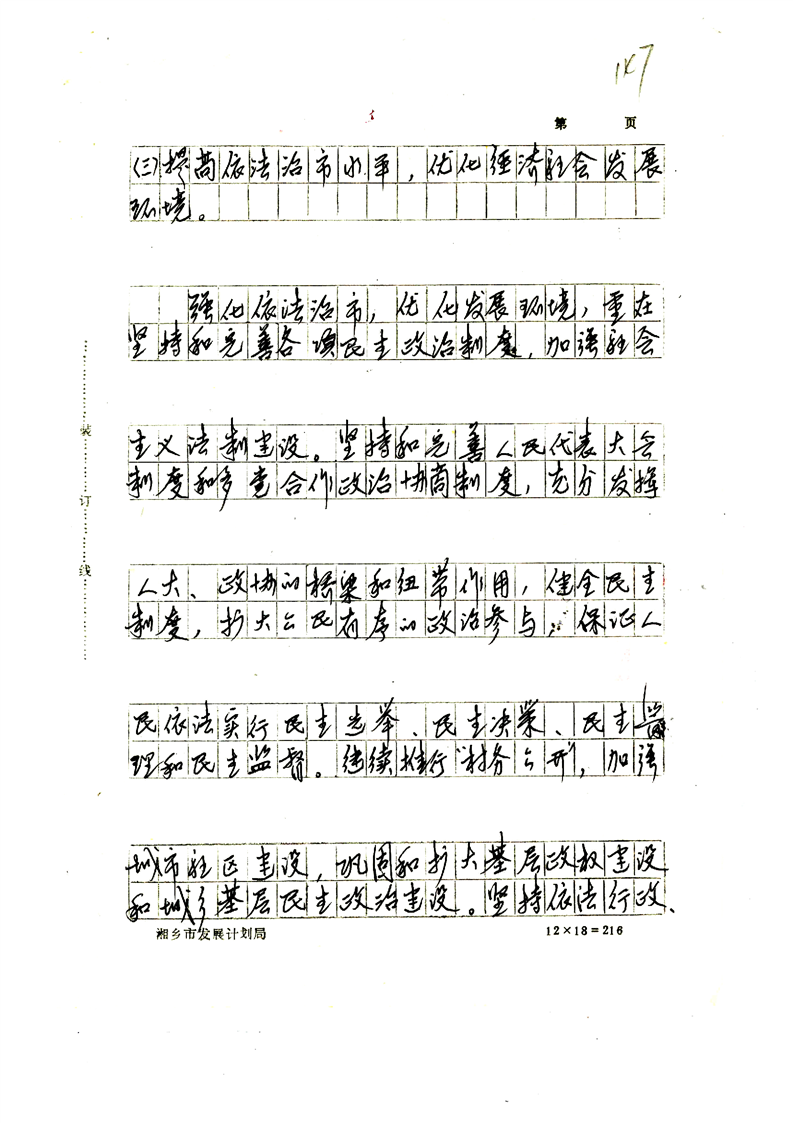 147
第 页
(三)提高依法治市水平，优化经济社会发展
环境。
强化依法治市，优化发展环境，重在
坚持和完善各项民主政治制度，加强社会
主义法制建设。坚持和完善人民代表大会
制度和多党合作政治协商制度，充分发挥
人大、政协的桥梁和纽带作用，健全民主
制度，扩大公民有序的政治参与，保证人
民依法实行民主选举、民主决策、民主管
理和民主监督。继续推行"村务公开"，加强
城市社区建设，巩固和扩大基层政权建设
和城乡基层民主政治建设。坚持依法行政、
湘乡市发展计划局 12×18=216
装订线